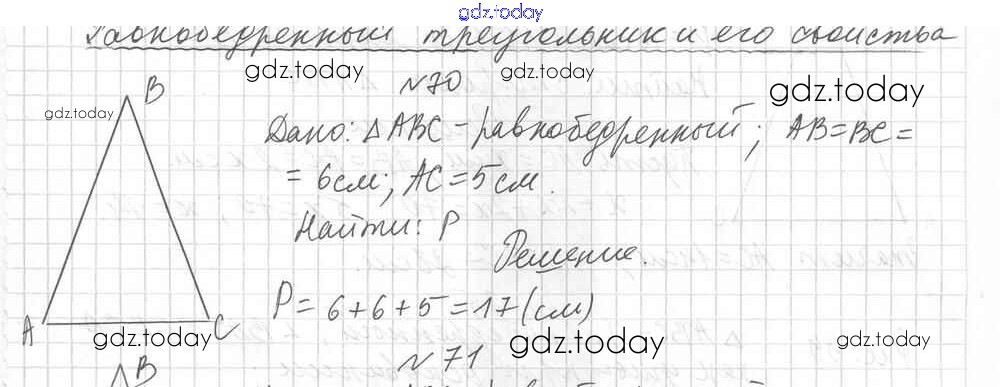 gdz.today
Равнобедренный треугольник и его свойства
gdz.today
gdz.today
№70
gdz.today
gdz.today
B
Дано: △ABC - равнобедренный; AB=BC=
= 6см; AC=5см.
Найти: P
Решение.
P= 6+6+5=17(см)
A
C
gdz.today
gdz.today
gdz.today
№71
B